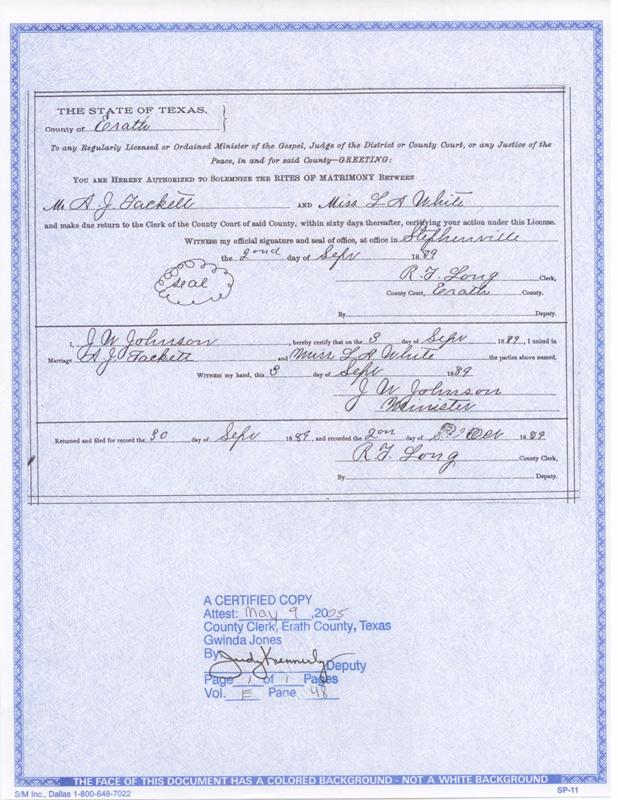 THE STATE OF TEXAS,
County of Erath
To any Regularly Licensed or Ordained Minister of the Gospel, Judge of the District or County Court, or any Justice of the
Peace, in and for said County—GREETING:
YOU ARE HEREBY AUTHORIZED TO SOLEMNIZE THE RITES OF MATRIMONY BETWEEN
Mr. A. J. Tackett AND Miss L A White
and make due return to the Clerk of the County Court of said County, within sixty days thereafter, certifying your action under this License.
WITNESS my official signature and seal of office, at office in Stephenville
the 2ond day of Sept 1889
seal
R. F. Long Clerk,
County Court, Erath County.
By Deputy.
I, J W Johnson, hereby certify that on the 3 day of Sept 1889, I united in
Marriage A. J. Tackett and Miss L A White the parties above named.
WITNESS my hand, this 3 day of Sept 1889
J W Johnson
Minister
Returned and filed for record the 30 day of Sept 1889, and recorded the 2on day of Oct 1889
R. F. Long County Clerk,
By Deputy.
A CERTIFIED COPY
Attest: May 9, 2005
County Clerk, Erath County, Texas
Gwinda Jones
By Judy Kennerly Deputy
Page 1 of 1 Pages
Vol. E Page 48
THE FACE OF THIS DOCUMENT HAS A COLORED BACKGROUND - NOT A WHITE BACKGROUND
S/M Inc., Dallas 1-800-648-7022 SP-11